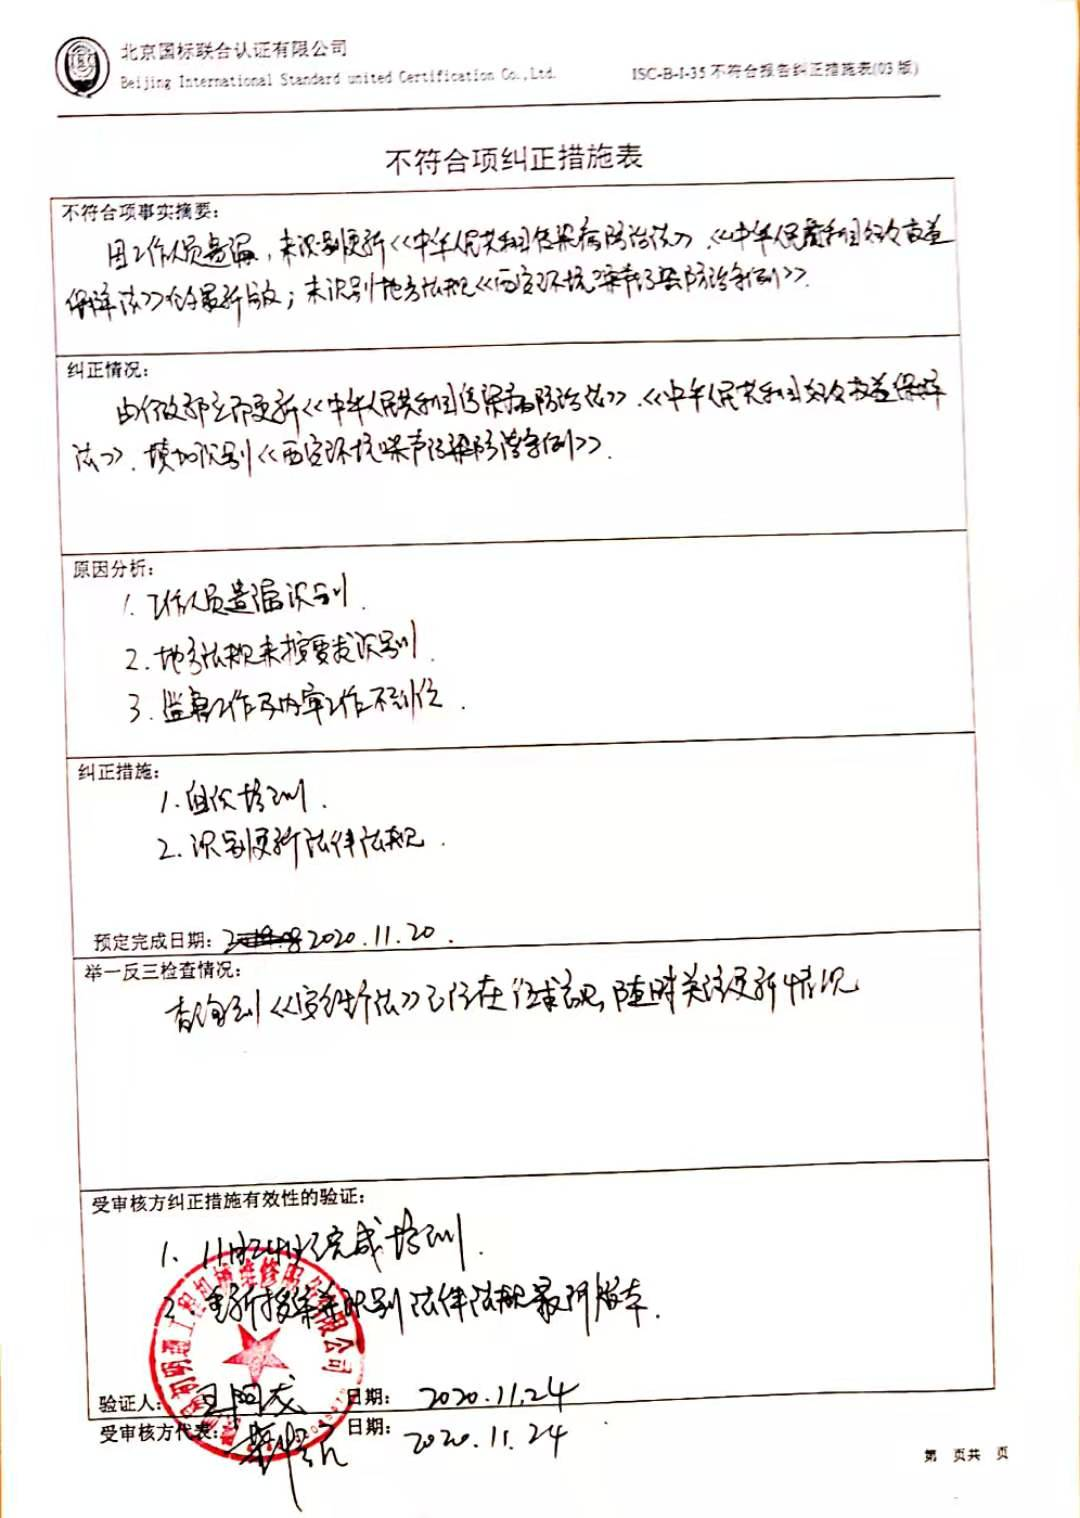 北京国标联合认证有限公司
Beijing International Standard united Certification Co.,Ltd.
ISC-B-I-35 不符合报告纠正措施表(03 版)
不符合项纠正措施表
不符合项事实摘要：
因工作人员遗漏，未识别更新《中华人民共和国传染病防治法》、《中华人民共和国妇女权益
保障法》的最新版；未识别地方法规《西安环境噪声污染防治条例》.
纠正情况：
由行政部立即更新《中华人民共和国传染病防治法》、《中华人民共和国妇女权益保障
法》、增加识别《西安环境噪声污染防治条例》.
原因分析：
1. 工作人员遗漏识别.
2. 地方法规未按要求识别.
3. 监督工作及内审工作不到位.
纠正措施：
1. 组织培训.
2. 识别更新法律法规.
预定完成日期：2020.11.20.
举一反三检查情况：
查询到《》已存在征求意见，随时关注更新情况
受审核方纠正措施有效性的验证：
1、11月24日完成培训.
2、重新搜集并识别法律法规最新版本.
工程机械维修服务有限公司
验证人： 日期： 2020.11.24
受审核方代表： 日期： 2020.11.24
第 页共 页